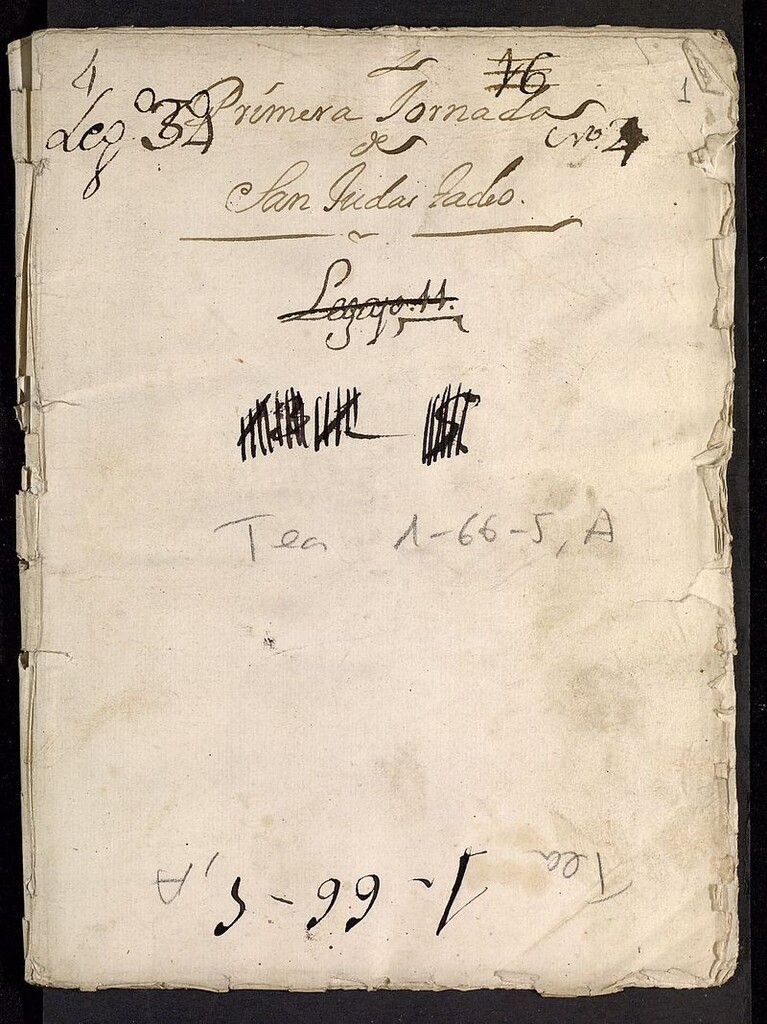 4
16
1
Leg.º 34
Primera Jornada
de
San Judas Tadeo.
Legajo. 11.
Tea 1-66-5, A
Tea 1-66-5, A